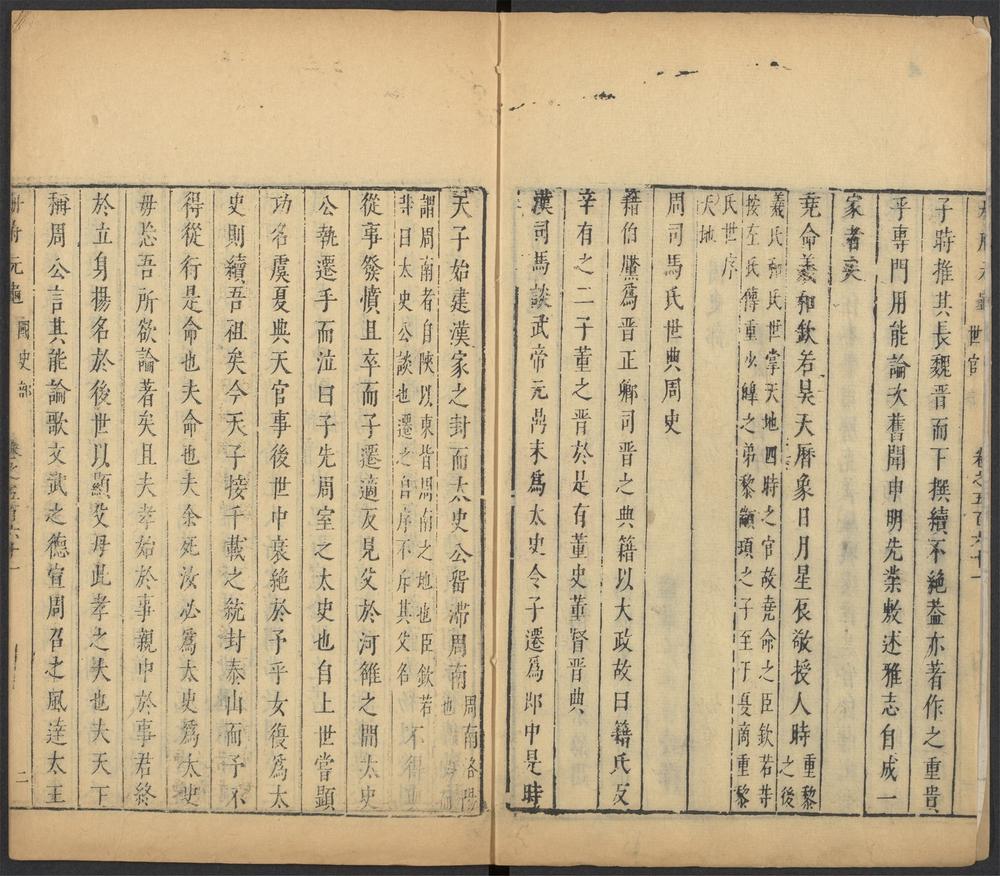 世官
卷之五百六十一
子時推其長魏晉而下撰續不絕蓋亦著作之重貴
乎專門用能論次舊聞申明先業敷述雅志自成一
家者矣
堯命羲和欽若昊天曆象日月星辰敬授人時重黎之後
羲氏和氏世掌天地四時之官故堯命之臣欽若等
按左氏傳重少皥之弟黎顓頊之子至于夏商重黎
氏世序
天地
周司馬氏世典周史
籍伯黶爲晉正卿司晉之典籍以大政故曰籍氏及
辛有之二子董之晉於是有董史董督晉典
漢司馬談武帝元鼎末爲太史令子遷爲郎中是時
天子始建漢家之封而太史公留滯周南周南洛陽也
謂周南者自陝以東皆周南之地也臣欽若
等曰太史公談也遷之自序不斥其父名
不得
從事發憤且卒而子遷適反見父於河雒之間太史
公執遷手而泣曰予先周室之太史也自上世嘗顯
功名虞夏典天官事後世中衰絕於予乎女復爲太
史則續吾祖矣今天子接千載之統封泰山而予不
得從行是命也夫命也夫余死汝必爲太史爲太史
毋忘吾所欲論著矣且夫孝始於事親中於事君終
於立身揚名於後世以顯父母此孝之大也夫天下
稱周公言其能論歌文武之德宣周召之風達太王
冊府元龜
國史部
卷之五百六十一
二